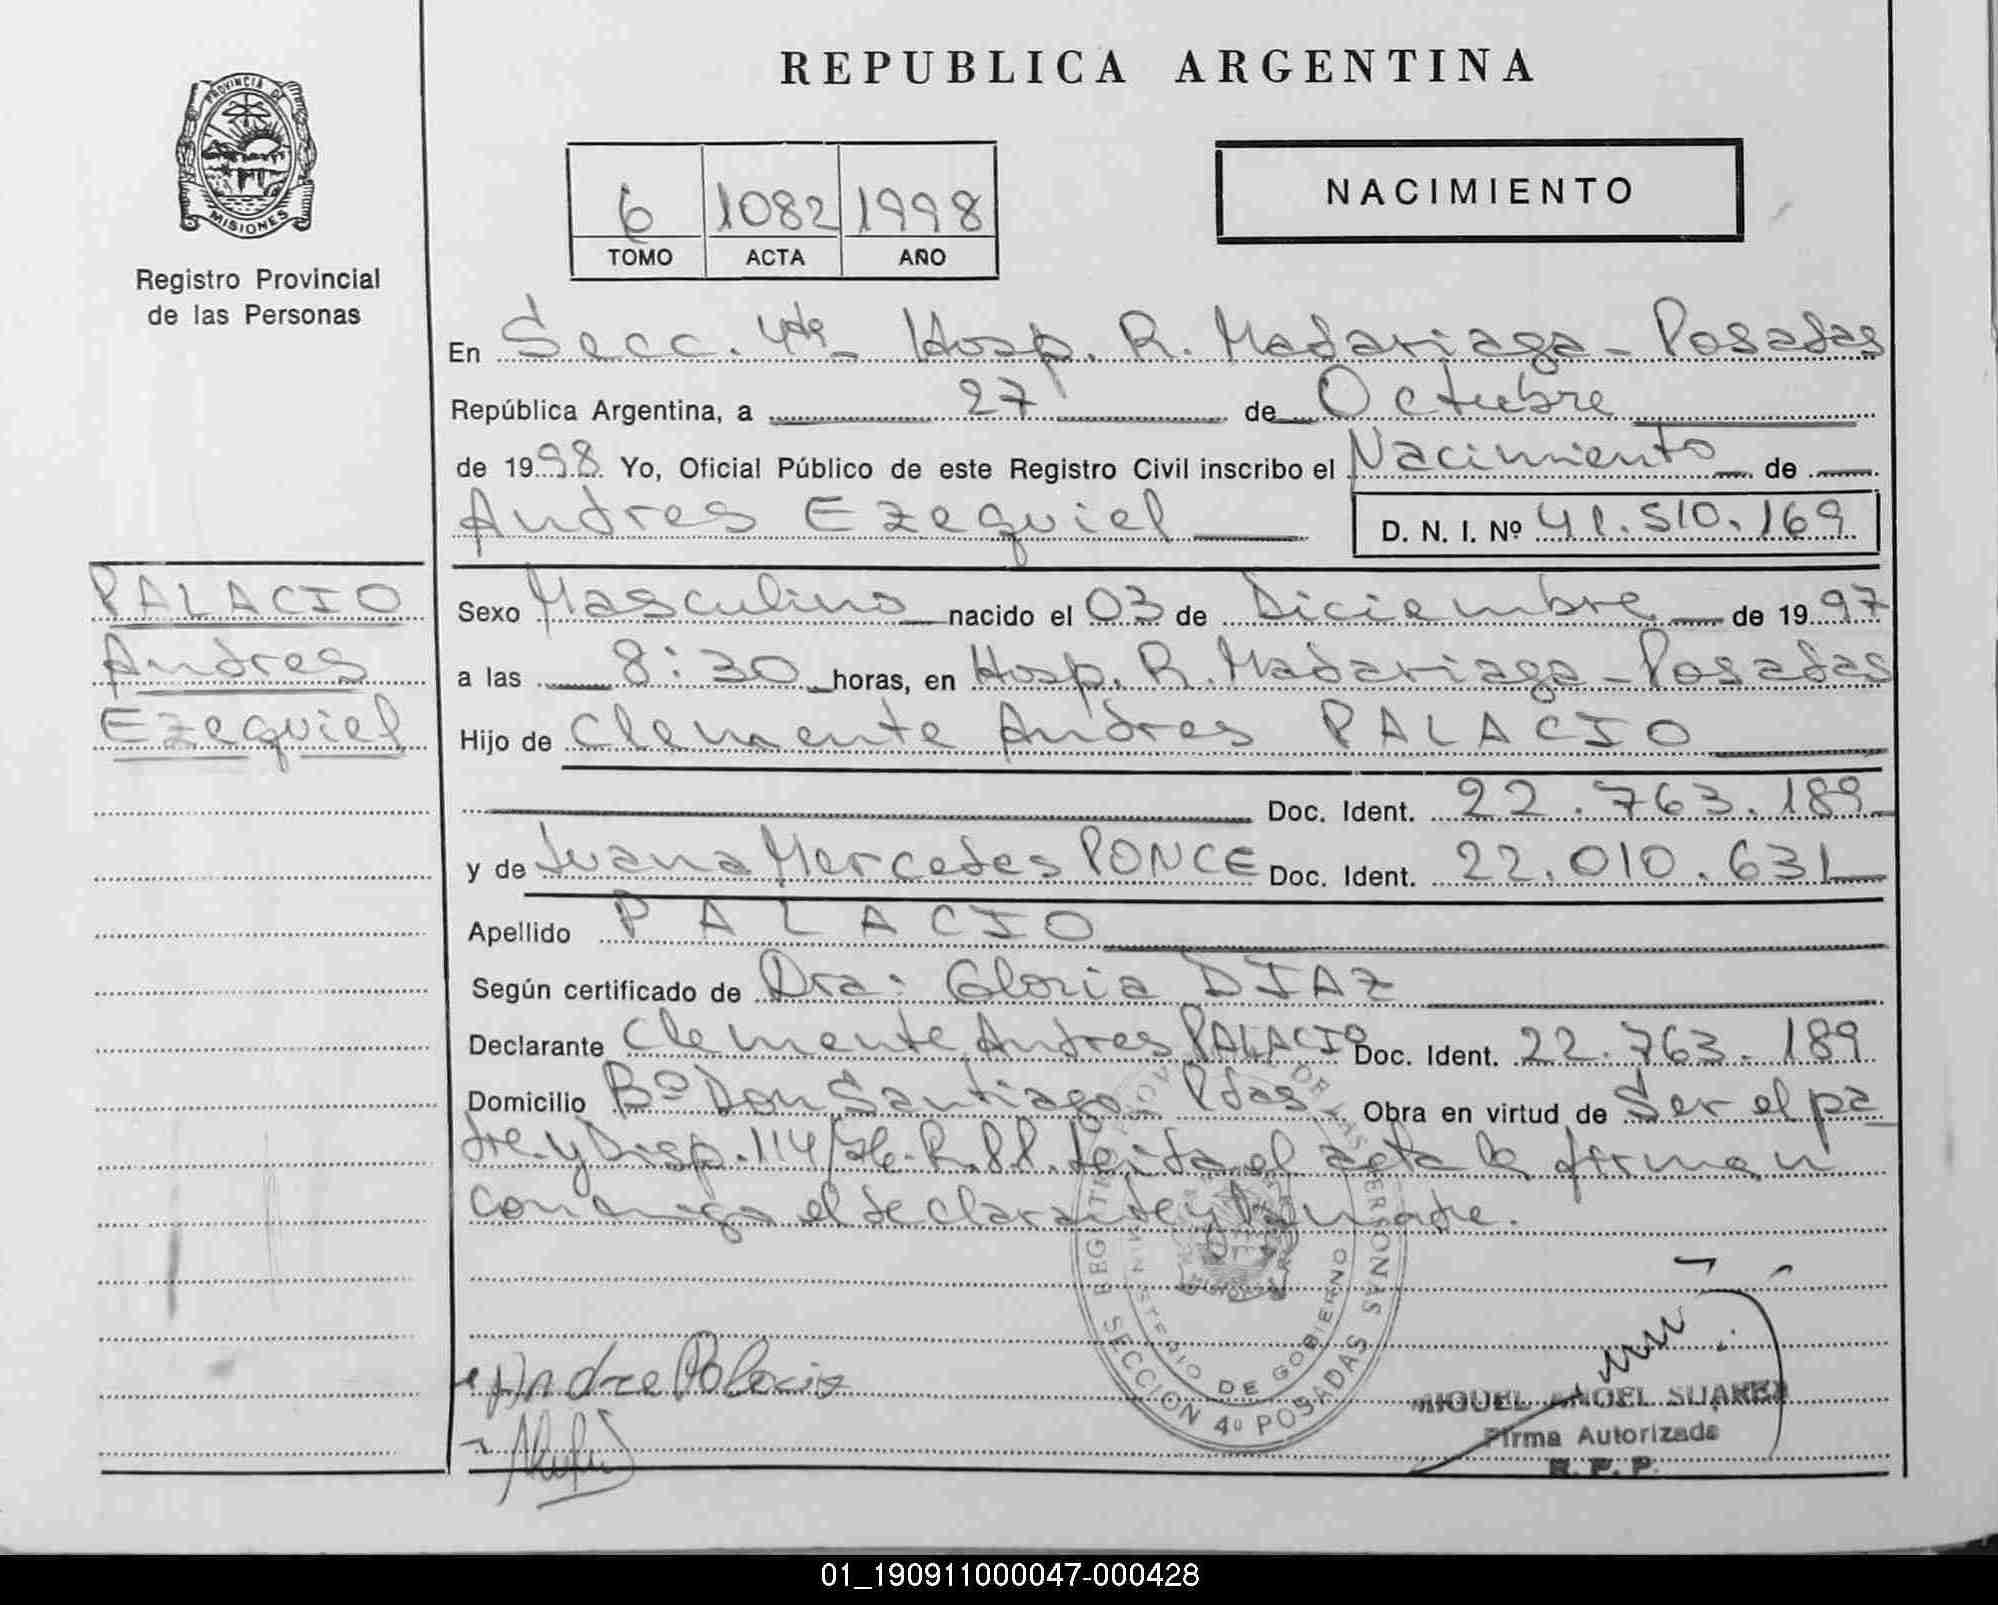 REPUBLICA ARGENTINA
PROVINCIA DE
MISIONES
Registro Provincial
de las Personas
6 1082 1998
TOMO ACTA AÑO
NACIMIENTO
En Secc. 4ta Hosp. R. Madariaga - Posadas
República Argentina, a 27 de Octubre
de 1998 Yo, Oficial Público de este Registro Civil inscribo el Nacimiento de
Andres Ezequiel D. N. I. Nº 41.510.169
PALACIO
Andres
Ezequiel
Sexo Masculino nacido el 03 de Diciembre de 1997
a las 8:30 horas, en Hosp. R. Madariaga - Posadas
Hijo de Clemente Andres PALACIO
Doc. Ident. 22.763.189
y de Juana Mercedes PONCE Doc. Ident. 22.010.631
Apellido PALACIO
Según certificado de Dra: Gloria DIAZ
Declarante Clemente Andres PALACIO Doc. Ident. 22.763.189
Domicilio Bº Don Santiago - Pdas - Obra en virtud de Ser el pa
dre y Disp. 114/ R.P.P. Leida el acta la firman
conmigo el declarante y la madre.
MINISTERIO DE GOBIERNO
SECCION 4º POSADAS
Andre Palacio
MIGUEL ANGEL SUAREZ
Firma Autorizada
R. P. P.
01_190911000047-000428